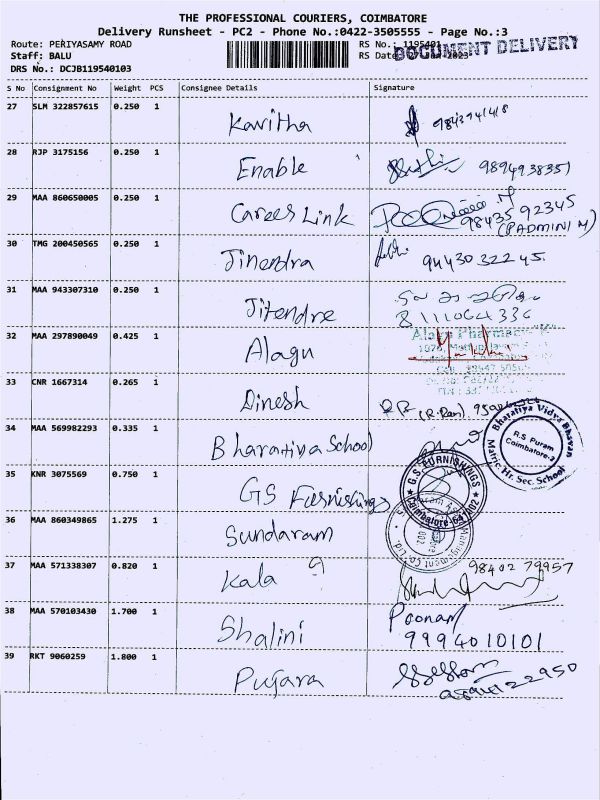 THE PROFESSIONAL COURIERS, COIMBATORE
Delivery Runsheet - PC2 - Phone No.:0422-3505555 - Page No.:3
Route: PERIYASAMY ROAD RS No.: 1195401
Staff: BALU RS Date
DOCUMENT DELIVERY
DRS No.: DCJB119540103
S No Consignment No Weight PCS Consignee Details Signature
27 SLM 322857615 0.250 1 Kavitha 9843941418
28 RJP 3175156 0.250 1 Enable 9894938351
29 MAA 860650005 0.250 1 Career Link 98435 92345
(PADMINI M)
30 TMG 200450565 0.250 1 Jinendra 94430 32245
31 MAA 943307310 0.250 1 Jitendre 8111064336
32 MAA 297890049 0.425 1 Alagu
Alagu Pharmacy
33 CNR 1667314 0.265 1 Dinesh
34 MAA 569982293 0.335 1 Bharatiya School
Bharatiya Vidya Bhavan
Matric. Hr. Sec. School
R.S. Puram
Coimbatore-2
35 KNR 3075569 0.750 1 GS Furnishings
G.S. FURNISHINGS
Coimbatore-641 002
36 MAA 860349865 1.275 1 Sundaram
37 MAA 571338307 0.820 1 Kala 98402 79957
38 MAA 570103430 1.700 1 Shalini Poonam
9994010101
39 RKT 9060259 1.800 1 Pujara